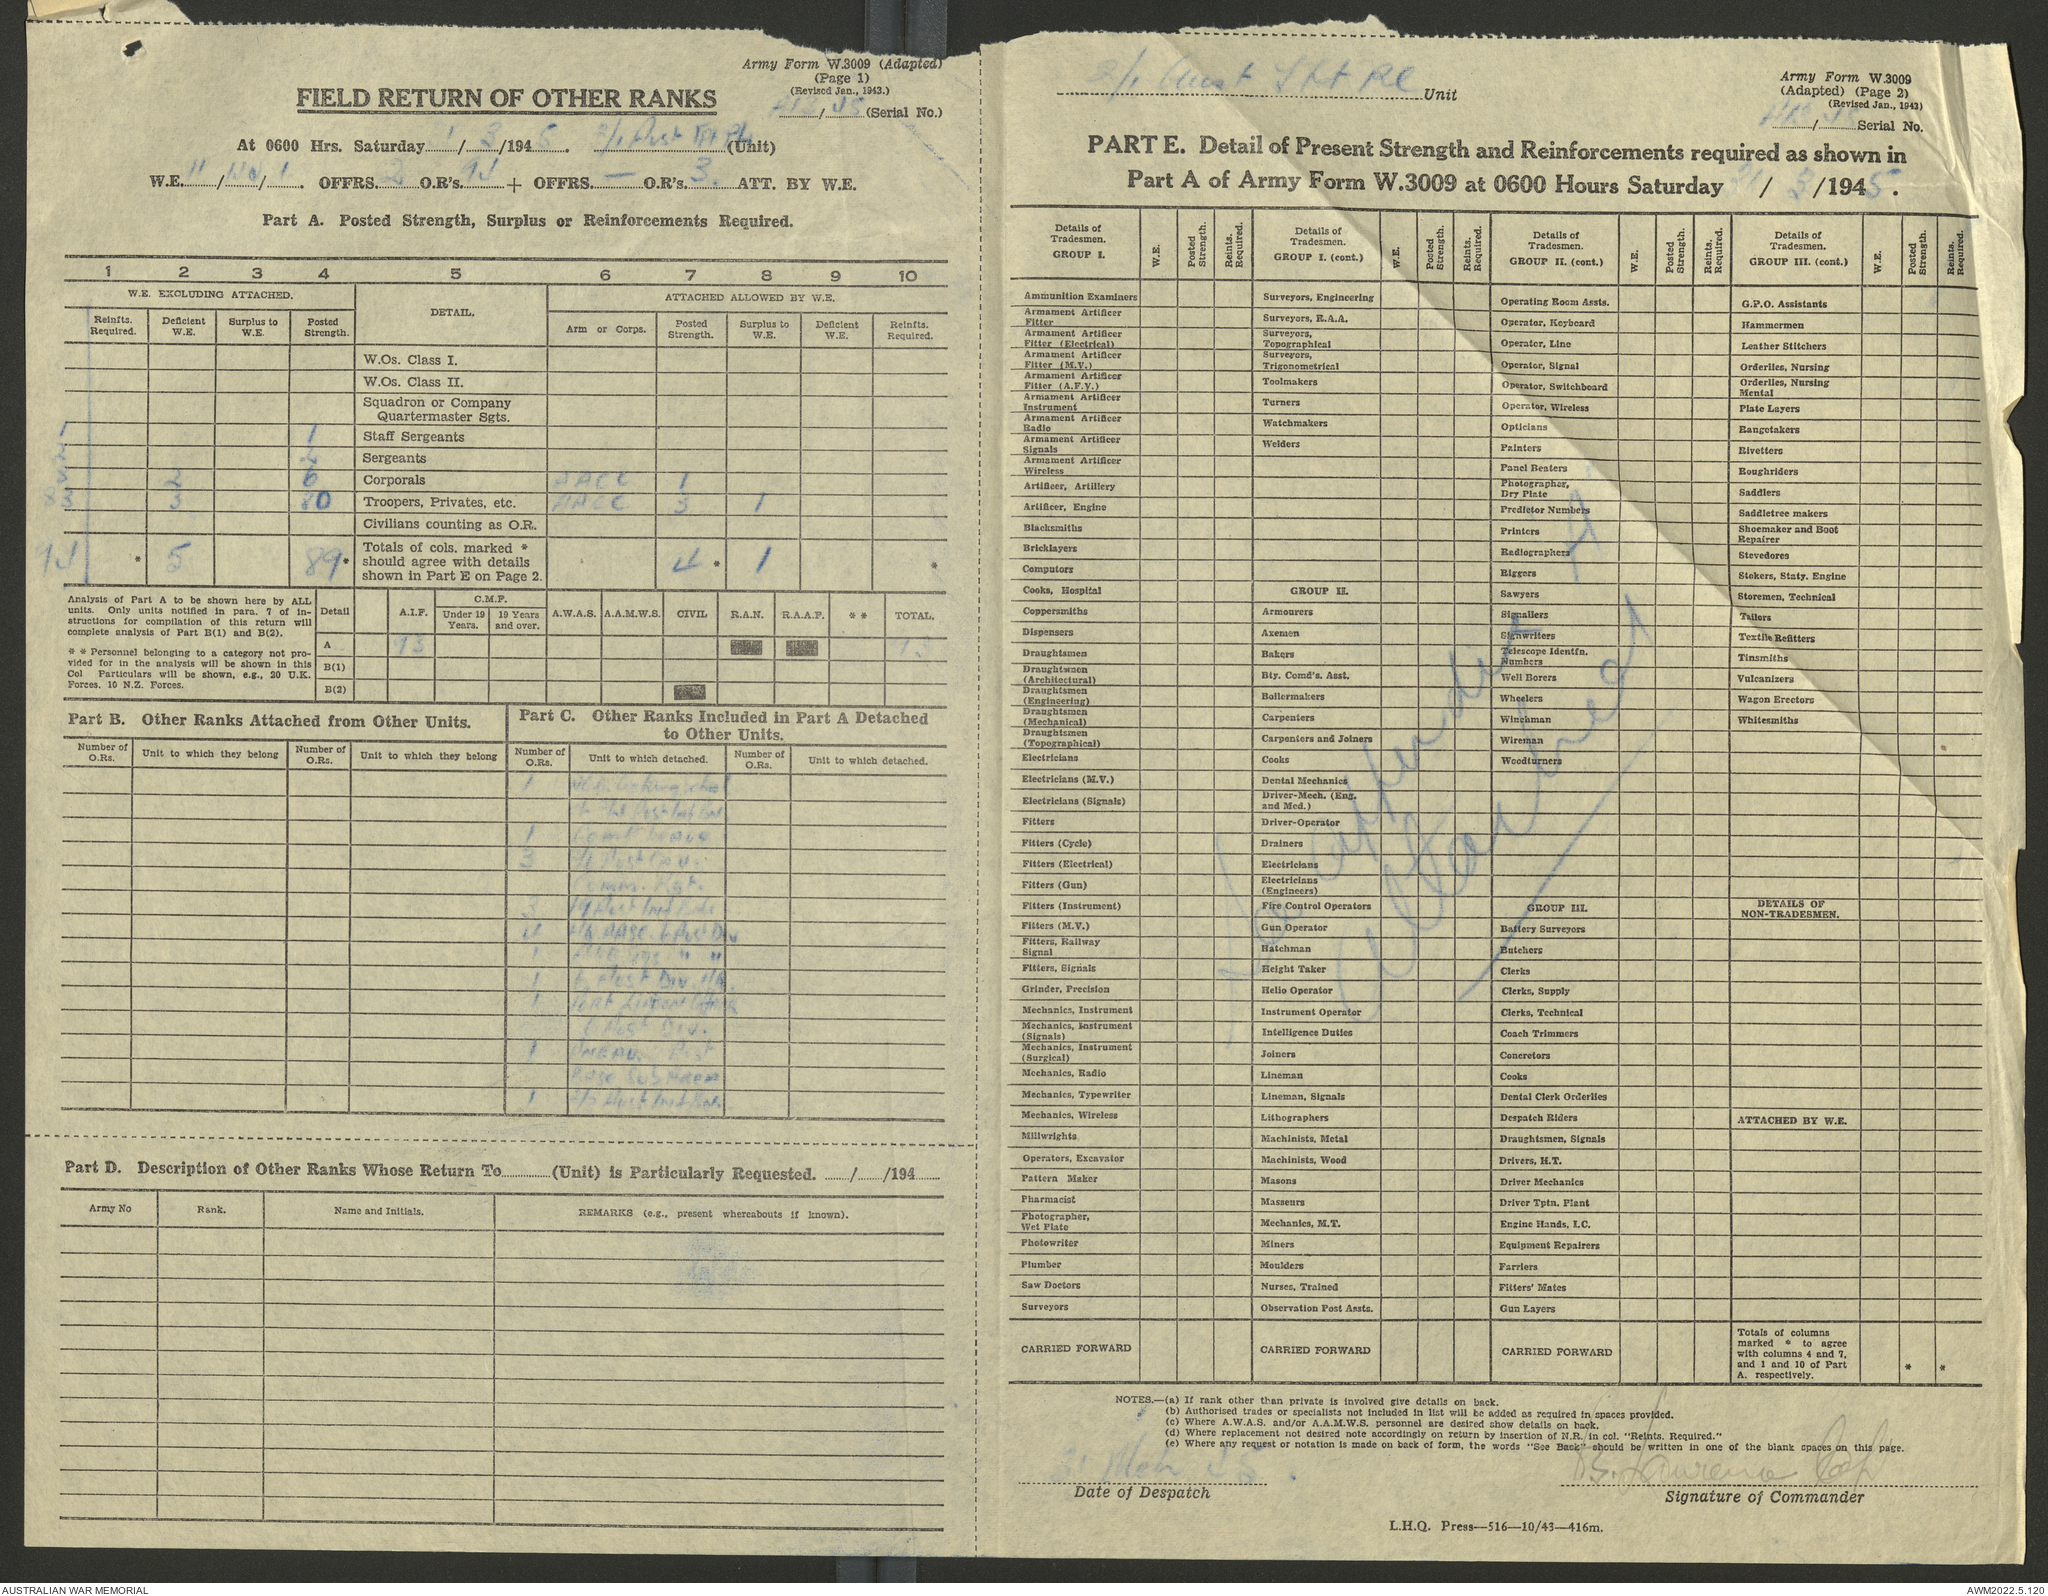 Army Form W.3009 (Adapted)
(Page 1)
(Revised Jan., 1943.)
FIELD RETURN OF OTHER RANKS
(Serial No.)
At 0600 Hrs. Saturday / 3 /1945. 2/1 Aust (Unit)
W.E. 11 / / 1. OFFRS. 2 O.R's. 94 + OFFRS. — O.R's. 3. ATT. BY W.E.
Part A. Posted Strength, Surplus or Reinforcements Required.
1 2 3 4 5 6 7 8 9 10
W.E. EXCLUDING ATTACHED. DETAIL. ATTACHED ALLOWED BY W.E.
Reinfts. Required. Deficient W.E. Surplus to W.E. Posted Strength. Arm or Corps. Posted Strength. Surplus to W.E. Deficient W.E. Reinfts. Required.
W.Os. Class I.
W.Os. Class II.
Squadron or Company
Quartermaster Sgts.
1 1 Staff Sergeants
2 2 Sergeants
2 6 Corporals AACC 1
3 80 Troopers, Privates, etc. AACC 3 1
Civilians counting as O.R.
94 * 5 89* Totals of cols. marked * should agree with details shown in Part E on Page 2. 4 * 1 *
Analysis of Part A to be shown here by ALL
units. Only units notified in para. 7 of in-
structions for compilation of this return will
complete analysis of Part B(1) and B(2).
* * Personnel belonging to a category not pro-
vided for in the analysis will be shown in this
Col Particulars will be shown, e.g., 20 U.K.
Forces, 10 N.Z. Forces.
Detail A.I.F. C.M.F. Under 19 Years. 19 Years and over. A.W.A.S. A.A.M.W.S. CIVIL R.A.N. R.A.A.F. * * TOTAL.
A 93 93
B(1)
B(2)
Part B. Other Ranks Attached from Other Units.
Number of O.Rs. Unit to which they belong Number of O.Rs. Unit to which they belong
Part C. Other Ranks Included in Part A Detached
to Other Units.
Number of O.Rs. Unit to which detached. Number of O.Rs. Unit to which detached.
1
1 Leave
3 2/6 Aust Cav.
Comm. Rgt.
3 19 Aust Inf Bde
4 6 Aust Div
1 " "
1 6 Aust Div. HQ.
1
6 Aust Div.
1
Base Sub Area
1
Part D. Description of Other Ranks Whose Return To (Unit) is Particularly Requested. / /194
Army No Rank. Name and Initials. REMARKS (e.g., present whereabouts if known).
2/1 Aust Unit
Army Form W.3009
(Adapted) (Page 2)
(Revised Jan., 1943)
Serial No.
PART E. Detail of Present Strength and Reinforcements required as shown in
Part A of Army Form W.3009 at 0600 Hours Saturday 31 / 3 /1945.
Details of Tradesmen. GROUP I. W.E. Posted Strength. Reints. Required.
Ammunition Examiners
Armament Artificer Fitter
Armament Artificer Fitter (Electrical)
Armament Artificer Fitter (M.V.)
Armament Artificer Fitter (A.F.V.)
Armament Artificer Instrument
Armament Artificer Radio
Armament Artificer Signals
Armament Artificer Wireless
Artificer, Artillery
Artificer, Engine
Blacksmiths
Bricklayers
Computors
Cooks, Hospital
Coppersmiths
Dispensers
Draughtsmen
Draughtsmen (Architectural)
Draughtsmen (Engineering)
Draughtsmen (Mechanical)
Draughtsmen (Topographical)
Electricians
Electricians (M.V.)
Electricians (Signals)
Fitters
Fitters (Cycle)
Fitters (Electrical)
Fitters (Gun)
Fitters (Instrument)
Fitters (M.V.)
Fitters, Railway Signal
Fitters, Signals
Grinder, Precision
Mechanics, Instrument
Mechanics, Instrument (Signals)
Mechanics, Instrument (Surgical)
Mechanics, Radio
Mechanics, Typewriter
Mechanics, Wireless
Millwrights
Operators, Excavator
Pattern Maker
Pharmacist
Photographer, Wet Plate
Photowriter
Plumber
Saw Doctors
Surveyors
CARRIED FORWARD
Details of Tradesmen. GROUP I. (cont.) W.E. Posted Strength. Reints. Required.
Surveyors, Engineering
Surveyors, R.A.A.
Surveyors, Topographical
Surveyors, Trigonometrical
Toolmakers
Turners
Watchmakers
Welders
GROUP II.
Armourers
Axemen
Bakers
Bty. Comd's. Asst.
Boilermakers
Carpenters
Carpenters and Joiners
Cooks
Dental Mechanics
Driver-Mech. (Eng. and Med.)
Driver-Operator
Drainers
Electricians
Electricians (Engineers)
Fire Control Operators
Gun Operator
Hatchman
Height Taker
Helio Operator
Instrument Operator
Intelligence Duties
Joiners
Lineman
Lineman, Signals
Lithographers
Machinists, Metal
Machinists, Wood
Masons
Masseurs
Mechanics, M.T.
Miners
Moulders
Nurses, Trained
Observation Post Assts.
CARRIED FORWARD
Details of Tradesmen. GROUP II. (cont.) W.E. Posted Strength. Reints. Required.
Operating Room Assts.
Operator, Keyboard
Operator, Line
Operator, Signal
Operator, Switchboard
Operator, Wireless
Opticians
Painters
Panel Beaters
Photographer, Dry Plate
Predictor Numbers
Printers
Radiographers
Riggers
Sawyers
Signallers
Signwriters
Telescope Identfn. Numbers
Well Borers
Wheelers
Winchman
Wireman
Woodturners
GROUP III.
Battery Surveyors
Butchers
Clerks
Clerks, Supply
Clerks, Technical
Coach Trimmers
Concretors
Cooks
Dental Clerk Orderlies
Despatch Riders
Draughtsmen, Signals
Drivers, H.T.
Driver Mechanics
Driver Tptn. Plant
Engine Hands, I.C.
Equipment Repairers
Farriers
Fitters' Mates
Gun Layers
CARRIED FORWARD
Details of Tradesmen. GROUP III. (cont.) W.E. Posted Strength. Reints. Required.
G.P.O. Assistants
Hammermen
Leather Stitchers
Orderlies, Nursing
Orderlies, Nursing Mental
Plate Layers
Rangetakers
Rivetters
Roughriders
Saddlers
Saddletree makers
Shoemaker and Boot Repairer
Stevedores
Stokers, Staty. Engine
Storemen, Technical
Tailors
Textile Refitters
Tinsmiths
Vulcanizers
Wagon Erectors
Whitesmiths
DETAILS OF NON-TRADESMEN.
ATTACHED BY W.E.
Totals of columns
marked * to agree
with columns 4 and 7,
and 1 and 10 of Part
A. respectively. * *
See Appendix "A"
attached
NOTES.—(a) If rank other than private is involved give details on back.
(b) Authorised trades or specialists not included in list will be added as required in spaces provided.
(c) Where A.W.A.S. and/or A.A.M.W.S. personnel are desired show details on back.
(d) Where replacement not desired note accordingly on return by insertion of N.R. in col. "Reints. Required."
(e) Where any request or notation is made on back of form, the words "See Back" should be written in one of the blank spaces on this page.
31 Mch 45.
Date of Despatch
Signature of Commander
L.H.Q. Press—516—10/43—416m.
AUSTRALIAN WAR MEMORIAL
AWM2022.5.120